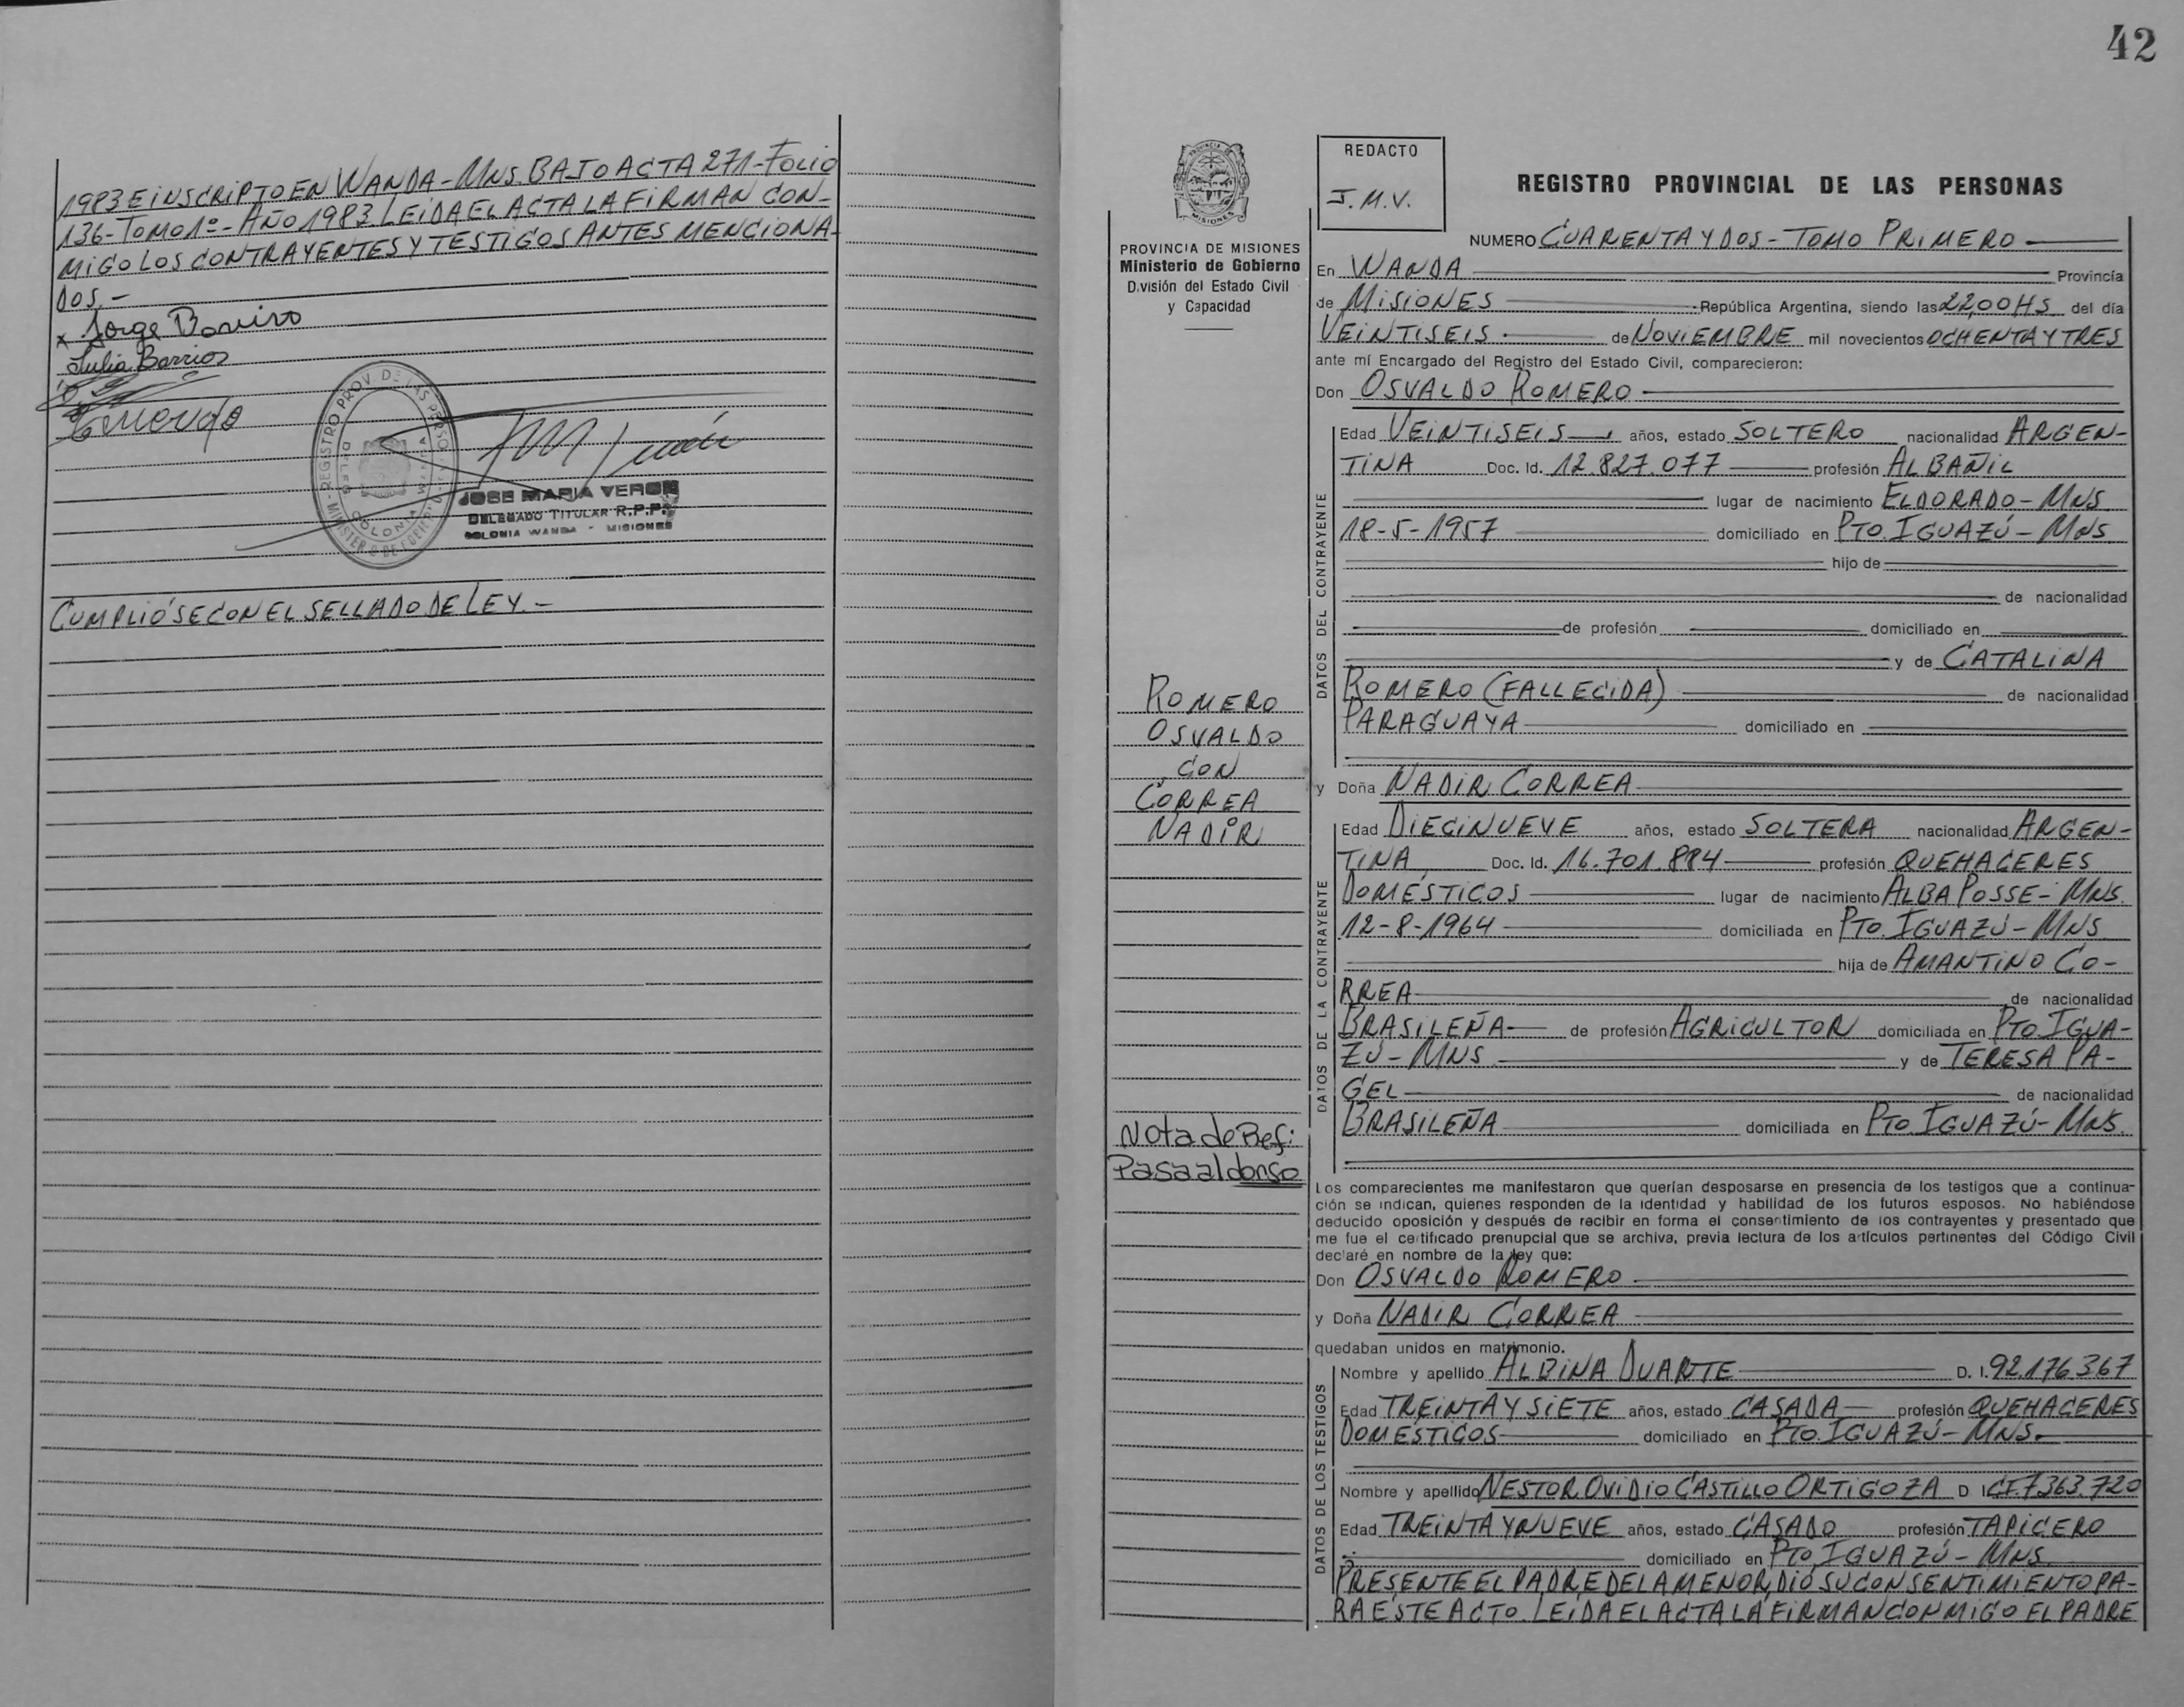 1983 E INSCRIPTO EN WANDA - MNS. BAJO ACTA 271 - FOLIO
136 - TOMO 1º - AÑO 1983. LEÍDA EL ACTA LA FIRMAN CON-
MIGO LOS CONTRAYENTES Y TESTIGOS ANTES MENCIONA-
DOS. -
x Jorge
Julia Barrios
REGISTRO PROV. DE LAS PERSO
COLONIA WANDA
JOSE MARIA VERON
DELEGADO TITULAR R.P.P.
COLONIA WANDA - MISIONES
CUMPLIÓSE CON EL SELLADO DE LEY. -
42
PROVINCIA DE
MISIONES
PROVINCIA DE MISIONES
Ministerio de Gobierno
División del Estado Civil
y Capacidad
ROMERO
OSVALDO
CON
CORREA
NADIR
Nota de Ref:
Pasa al dorso
REDACTO
J.M.V.
REGISTRO PROVINCIAL DE LAS PERSONAS
NUMERO CUARENTA Y DOS - TOMO PRIMERO
En WANDA Provincia
de MISIONES República Argentina, siendo las 22,00 HS del día
VEINTISEIS de NOVIEMBRE mil novecientos OCHENTA Y TRES
ante mí Encargado del Registro del Estado Civil, comparecieron:
Don OSVALDO ROMERO
DATOS DEL CONTRAYENTE
Edad VEINTISEIS años, estado SOLTERO nacionalidad ARGEN-
TINA Doc. Id. 12.827.077 profesión ALBAÑIL
lugar de nacimiento ELDORADO - MNS.
18-5-1957 domiciliado en PTO. IGUAZÚ - MNS.
hijo de
de nacionalidad
de profesión domiciliado en
y de CATALINA
ROMERO (FALLECIDA) de nacionalidad
PARAGUAYA domiciliado en
y Doña NADIR CORREA
DATOS DE LA CONTRAYENTE
Edad DIECINUEVE años, estado SOLTERA nacionalidad ARGEN-
TINA Doc. Id. 16.701.884 profesión QUEHACERES
DOMÉSTICOS lugar de nacimiento ALBA POSSE - MNS.
12-8-1964 domiciliada en PTO. IGUAZÚ - MNS
hija de AMANTINO CO-
RREA de nacionalidad
BRASILEÑA de profesión AGRICULTOR domiciliada en PTO. IGUA-
ZÚ - MNS y de TERESA PA-
GEL de nacionalidad
BRASILEÑA domiciliada en PTO IGUAZÚ - MNS.
Los comparecientes me manifestaron que querían desposarse en presencia de los testigos que a continua-
ción se indican, quienes responden de la identidad y habilidad de los futuros esposos. No habiéndose
deducido oposición y después de recibir en forma el consentimiento de los contrayentes y presentado que
me fue el certificado prenupcial que se archiva, previa lectura de los artículos pertinentes del Código Civil
declaré en nombre de la ley que:
Don OSVALDO ROMERO
y Doña NADIR CORREA
quedaban unidos en matrimonio.
DATOS DE LOS TESTIGOS
Nombre y apellido ALBINA DUARTE D. I. 92.176.367
Edad TREINTA Y SIETE años, estado CASADA profesión QUEHACERES
DOMÉSTICOS domiciliado en PTO. IGUAZÚ - MNS.
Nombre y apellido NESTOR OVIDIO CASTILLO ORTIGOZA D I CI. 7.363.720
Edad TREINTA Y NUEVE años, estado CASADO profesión TAPICERO
domiciliado en PTO. IGUAZÚ - MNS
PRESENTE EL PADRE DE LA MENOR, DIÓ SU CONSENTIMIENTO PA-
RA ÉSTE ACTO. LEÍDA EL ACTA LA FIRMAN CONMIGO EL PADRE